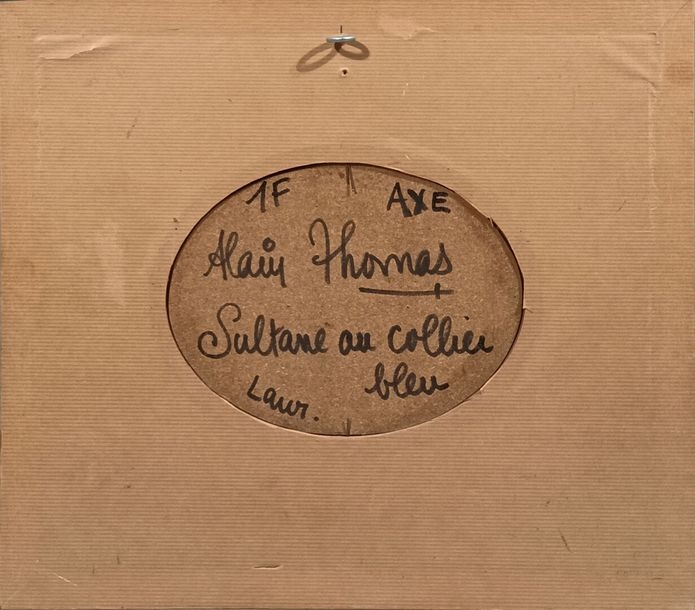 1F AXE
Alain Thomas
Sultane au collier
bleu
Laur.